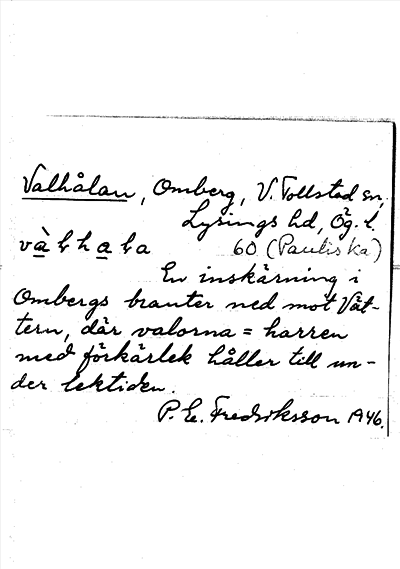 Valhålan, Omberg, V. Tollstad sn,
Lysings hd, Ög. l.
vàḷhaḷa 60 (Pauliska)
En inskärning i
Ombergs branter ned mot Vät-
tern, där valorna = harren
med förkärlek håller till un-
der lektiden.
P. E. Fredriksson 1946.